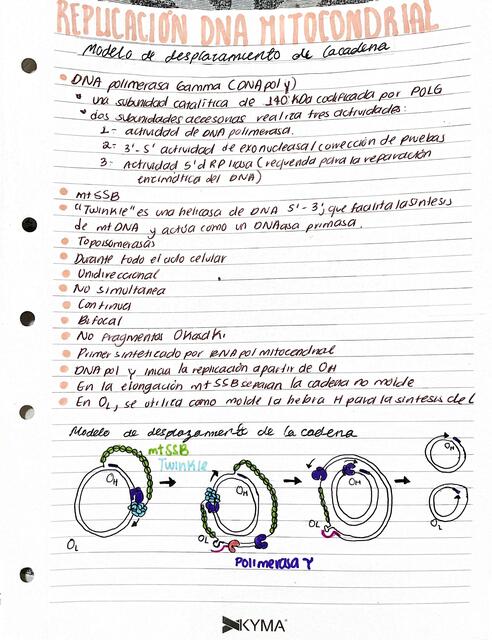 REPLICACIÓN DNA MITOCONDRIAL
Modelo de desplazamiento de la cadena
DNA polimerasa Gamma (DNA pol γ)
una subunidad catalítica de 140 KDa codificada por POLG
dos subunidades accesorias realiza tres actividades:
1- actividad de DNA polimerasa.
2- 3'-5' actividad de exonucleasa / corrección de pruebas
3- Actividad 5' dRP liasa (requerida para la reparación
enzimática del DNA)
mtSSB
"Twinkle" es una helicasa de DNA 5'-3', que facilita la sintesis
de mtDNA y actúa como un DNAasa primasa.
Topoisomerasas
Durante todo el ciclo celular
Unidireccional
No simultanea
Continua
Bifocal
No fragmentos Okazaki
Primer sintetizado por RNA pol mitocondrial
DNA pol γ inicia la replicación a partir de OH
En la elongación mtSSB separan la cadena no molde
En OL, se utiliza como molde la hebra H para la sintesis de L
Modelo de desplazamiento de la cadena
mtSSB
Twinkle
OH
OL
OH
OL
OH
OL
OH
OL
Polimerasa γ
KYMA